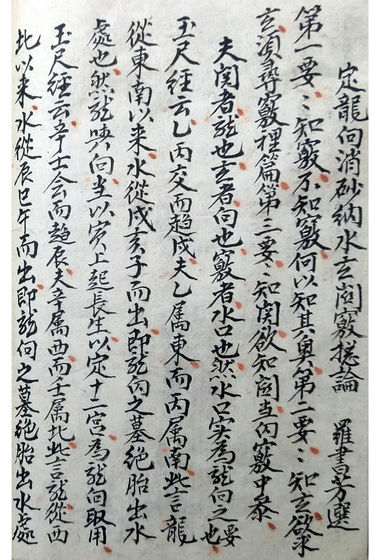 定龍向消砂納水玄関竅捴論　羅書芳選
第一要：知竅不知竅何以知其奥第二要：知玄欲求
玄須尋竅裡篇第三要：知関欲知関当向竅中叅
夫関者龍也玄者向也竅者水口也然水口实為龍向之要也
玉尺經云乙丙交而趨戍夫乙属東而丙属南此言龍
從東南以来水從戍亥子而出即龍向之墓絶胎出水
處也然龍向当以寅上起長生以定十二宫為龍向取用
玉尺經云辛壬会而趨辰夫辛属西而壬属北此言龍從西
北以来水從辰巳午而出即龍向之墓絶胎出水處